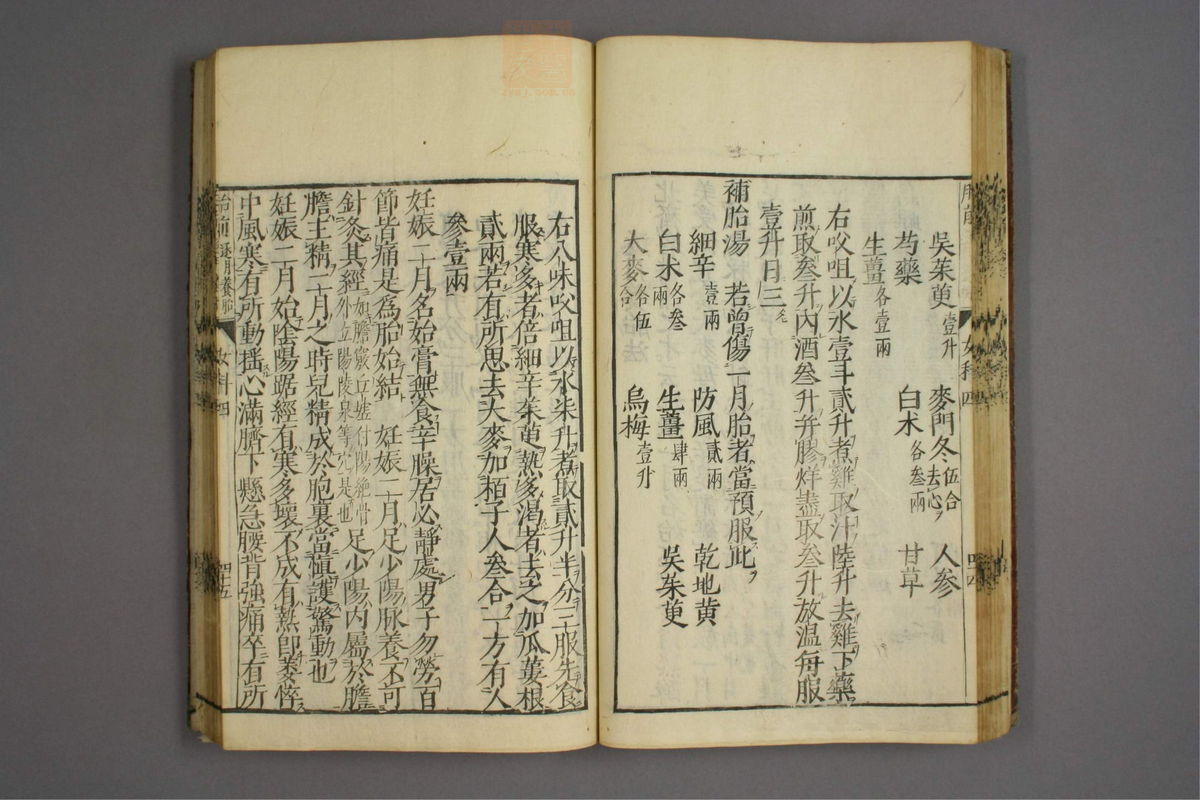 胎前　女科四　四十四
吳茱萸壹升　麥門冬伍合去心　人參
芍藥　白朮各叁兩　甘草
生薑各壹兩
右㕮咀以水壹斗貳升煮雞取汁陸升去雞下藥
煎取叁升內酒叁升并膠烊盡取叁升放温每服
壹升日三
補胎湯　若曾傷一月胎者當預服此
細辛壹兩　防風貳兩　乾地黄
白朮各叁兩　生薑肆兩　吳茱萸
大麥各伍合　烏梅壹升
右八味㕮咀以水柒升煮取貳升半分三服先食
服寒多者倍細辛茱萸熱多渴者去之加瓜蔞根
貳兩若有所思去大麥加栢子人叁合一方有人
參壹兩
妊娠二十月名始膏無食辛臊居必靜處男子勿勞百
節皆痛是為胎始結　妊娠二月足少陽脉養不可
針灸其經如膽竅丘墟付陽絶骨外立陽陵泉等穴是也足少陽內屬於膽
膽主精二十月之時兒精成於胞裏當慎護驚動也
妊娠二月始陰陽踞經有寒多壞不成有熱卽萎悴
中風寒有所動搖心滿臍下懸急腰背強痛卒有所
胎前　逐月養胎　女科四　四十五